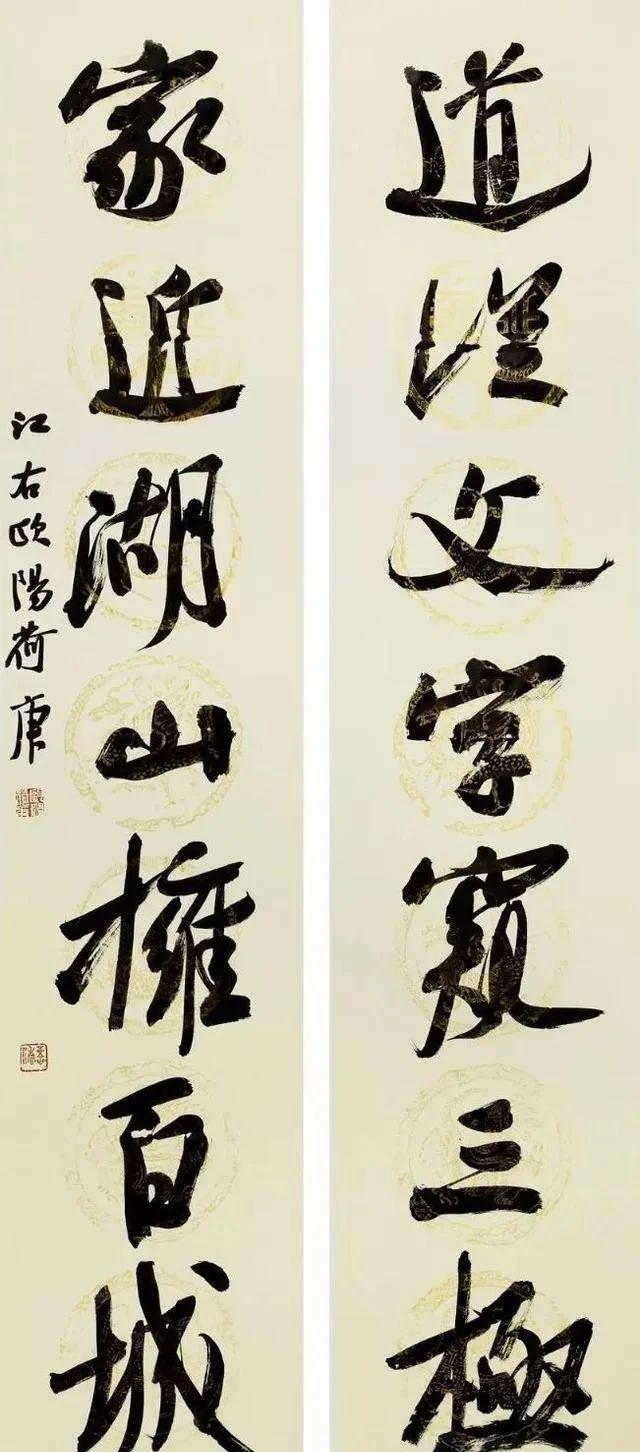 道從文字窺三極
家近湖山擁百城
江右歐陽荷庚